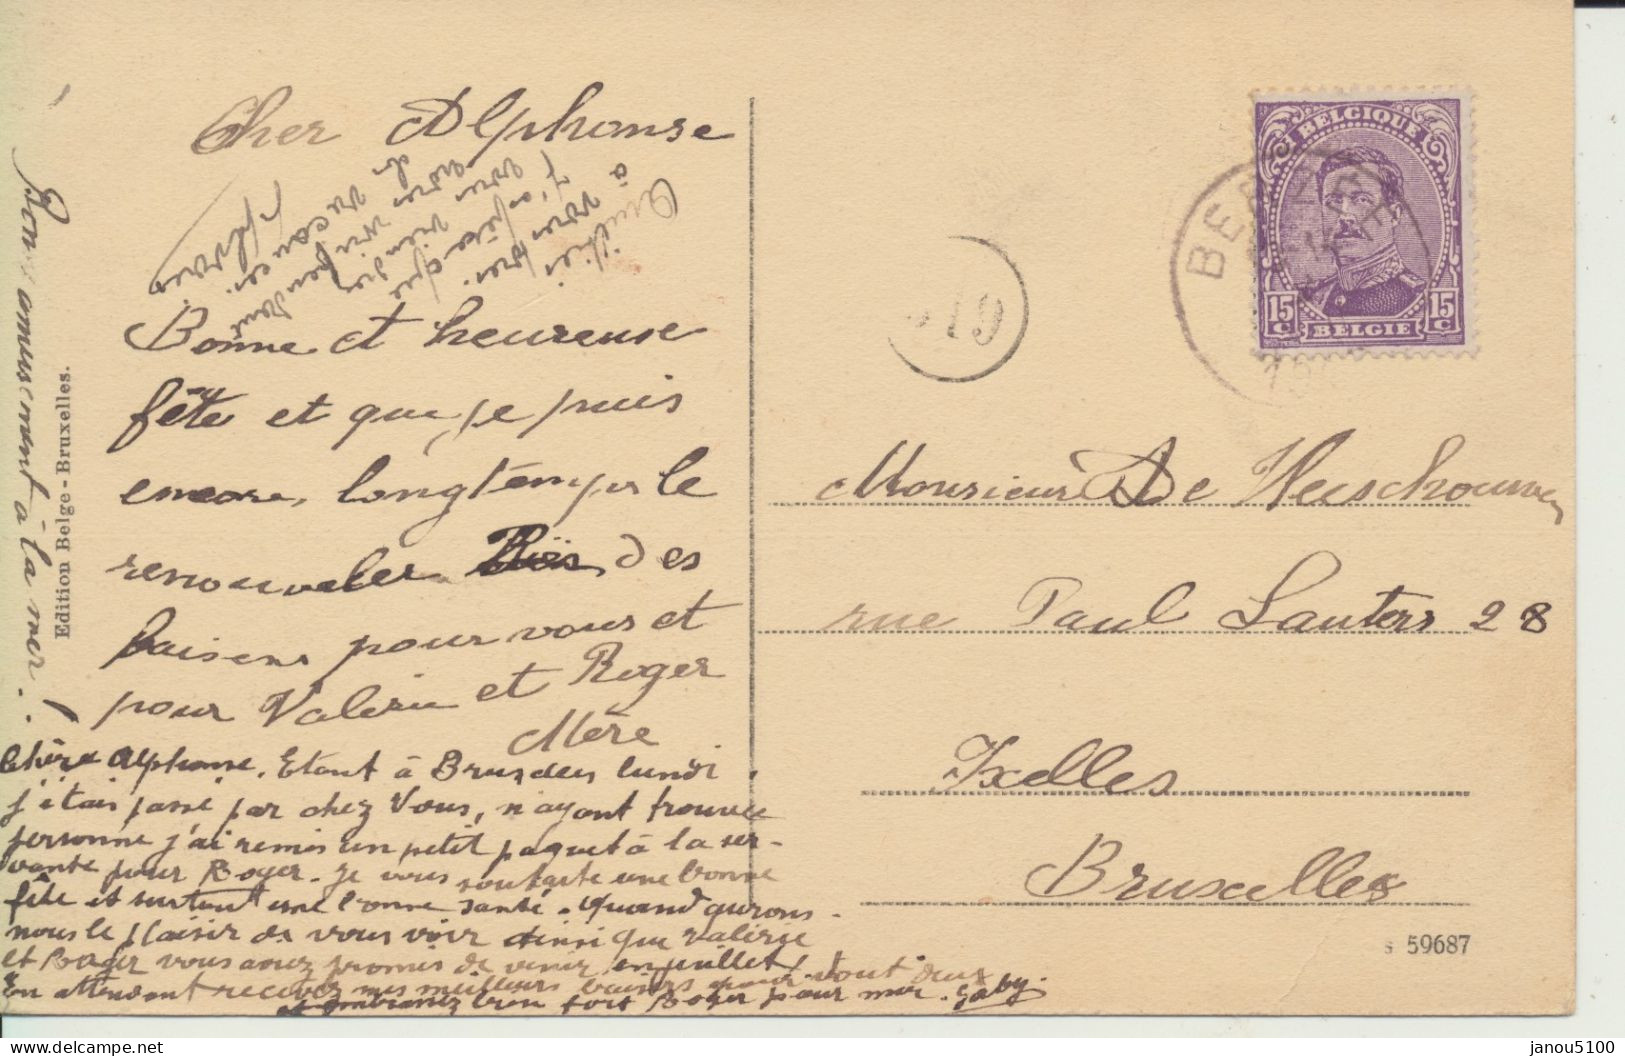 Cher Alphonse
Bonne et heureuse
fête et que je puis
encore, longtemps le
renouveler des
baisers pour vous et
pour Valérie et Roger
Mère
Chère Alphonse, Etant à Bruxelles lundi,
j'étais passé par chez Vous, n'ayant trouvée
personne j'ai remis un petit paquet à la ser-
vante pour Roger. Je vous souhaite une bonne
fête et surtout une bonne santé. Quand aurons-
nous le plaisir de vous voir ainsi que Valérie
et Roger vous avez promis de venir en juillet!
En attendant recevez mes meilleurs baisers pour vout deux
et embrassez bien fort Roger pour moi. Gaby.
Bon amusement à la mer!
Edition Belge - Bruxelles.
BELGIQUE
15 C
15 C
BELGIE
BE
19
Monsieur De
rue Paul Lauters 28
Ixelles
Bruxelles
S 59687
janou5100